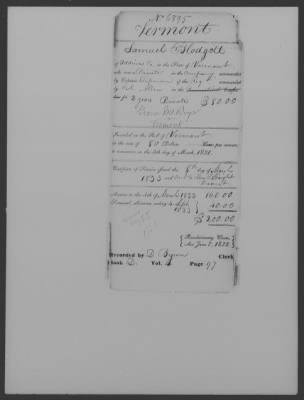 No 6895
Vermont
Samuel Blodgett
of Addison Co. in the State of Vermont
who was a Private in the Company commanded
by Captain of the Reg commanded
by Col. Allen in the
line for 2 years Private $80.00
Vermont
Inscribed on the Roll of Vermont
at the rate of 80 Dollars Cents per annum,
to commence on the 4th day of March, 1831.
Certificate of Pension issued the 8th day of
1833
Arrears to the 4th of March 1833 160.00
Semi-anl. allowance ending 4 Sept 1833 40.00
$200.00
Revolutionary Claim,
Act June 7, 1832.
Recorded by D. Brown Clerk
Book Vol. Page 97